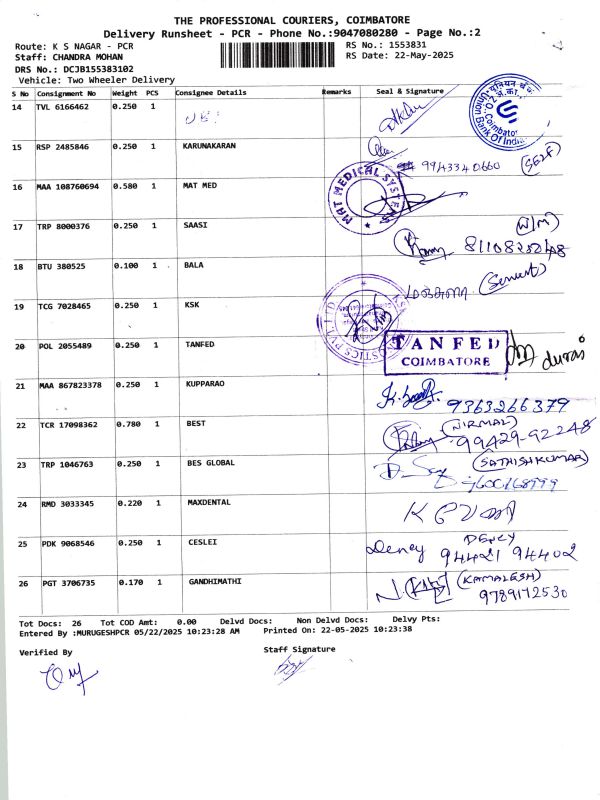 THE PROFESSIONAL COURIERS, COIMBATORE
Delivery Runsheet - PCR - Phone No.:9047080280 - Page No.:2
Route: K S NAGAR - PCR RS No.: 1553831
Staff: CHANDRA MOHAN RS Date: 22-May-2025
DRS No.: DCJB155383102
Vehicle: Two Wheeler Delivery
S No Consignment No Weight PCS Consignee Details Remarks Seal & Signature
14 TVL 6166462 0.250 1
Union Bank Of India
Coimbatore
15 RSP 2485846 0.250 1 KARUNAKARAN
9943340660 (SELF)
16 MAA 108760694 0.580 1 MAT MED
MAT MEDICAL SYSTEMS
17 TRP 8000376 0.250 1 SAASI
(W/M)
18 BTU 380525 0.100 1 BALA
(Servent)
19 TCG 7028465 0.250 1 KSK
20 POL 2055489 0.250 1 TANFED
TANFED
COIMBATORE
durai
21 MAA 867823378 0.250 1 KUPPARAO
9363266379
22 TCR 17098362 0.780 1 BEST
(NIRMAL)
99429-92248
23 TRP 1046763 0.250 1 BES GLOBAL
(SATHISHKUMAR)
24 RMD 3033345 0.220 1 MAXDENTAL
25 PDK 9068546 0.250 1 CESLEI
Deney DENCY
94421 94402
26 PGT 3706735 0.170 1 GANDHIMATHI
(KAMALESH)
9789172530
Tot Docs: 26 Tot COD Amt: 0.00 Delvd Docs: Non Delvd Docs: Delvy Pts:
Entered By :MURUGESHPCR 05/22/2025 10:23:28 AM Printed On: 22-05-2025 10:23:38
Verified By Staff Signature